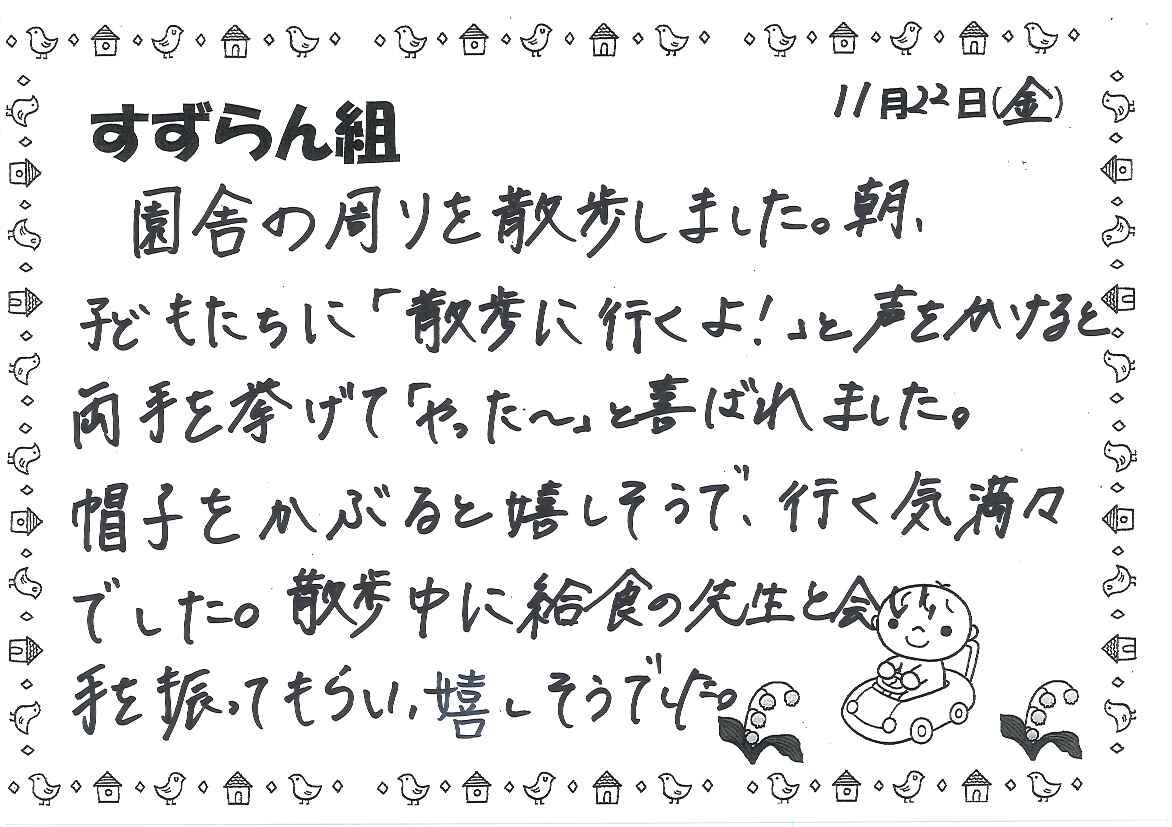 11月22日(金)
すずらん組
園舎の周りを散歩しました。朝、
子どもたちに「散歩に行くよ！」と声をかけると
両手を挙げて「やった〜」と喜ばれました。
帽子をかぶると嬉しそうで、行く気満々
でした。散歩中に給食の先生と会い
手を振ってもらい、嬉しそうでした。